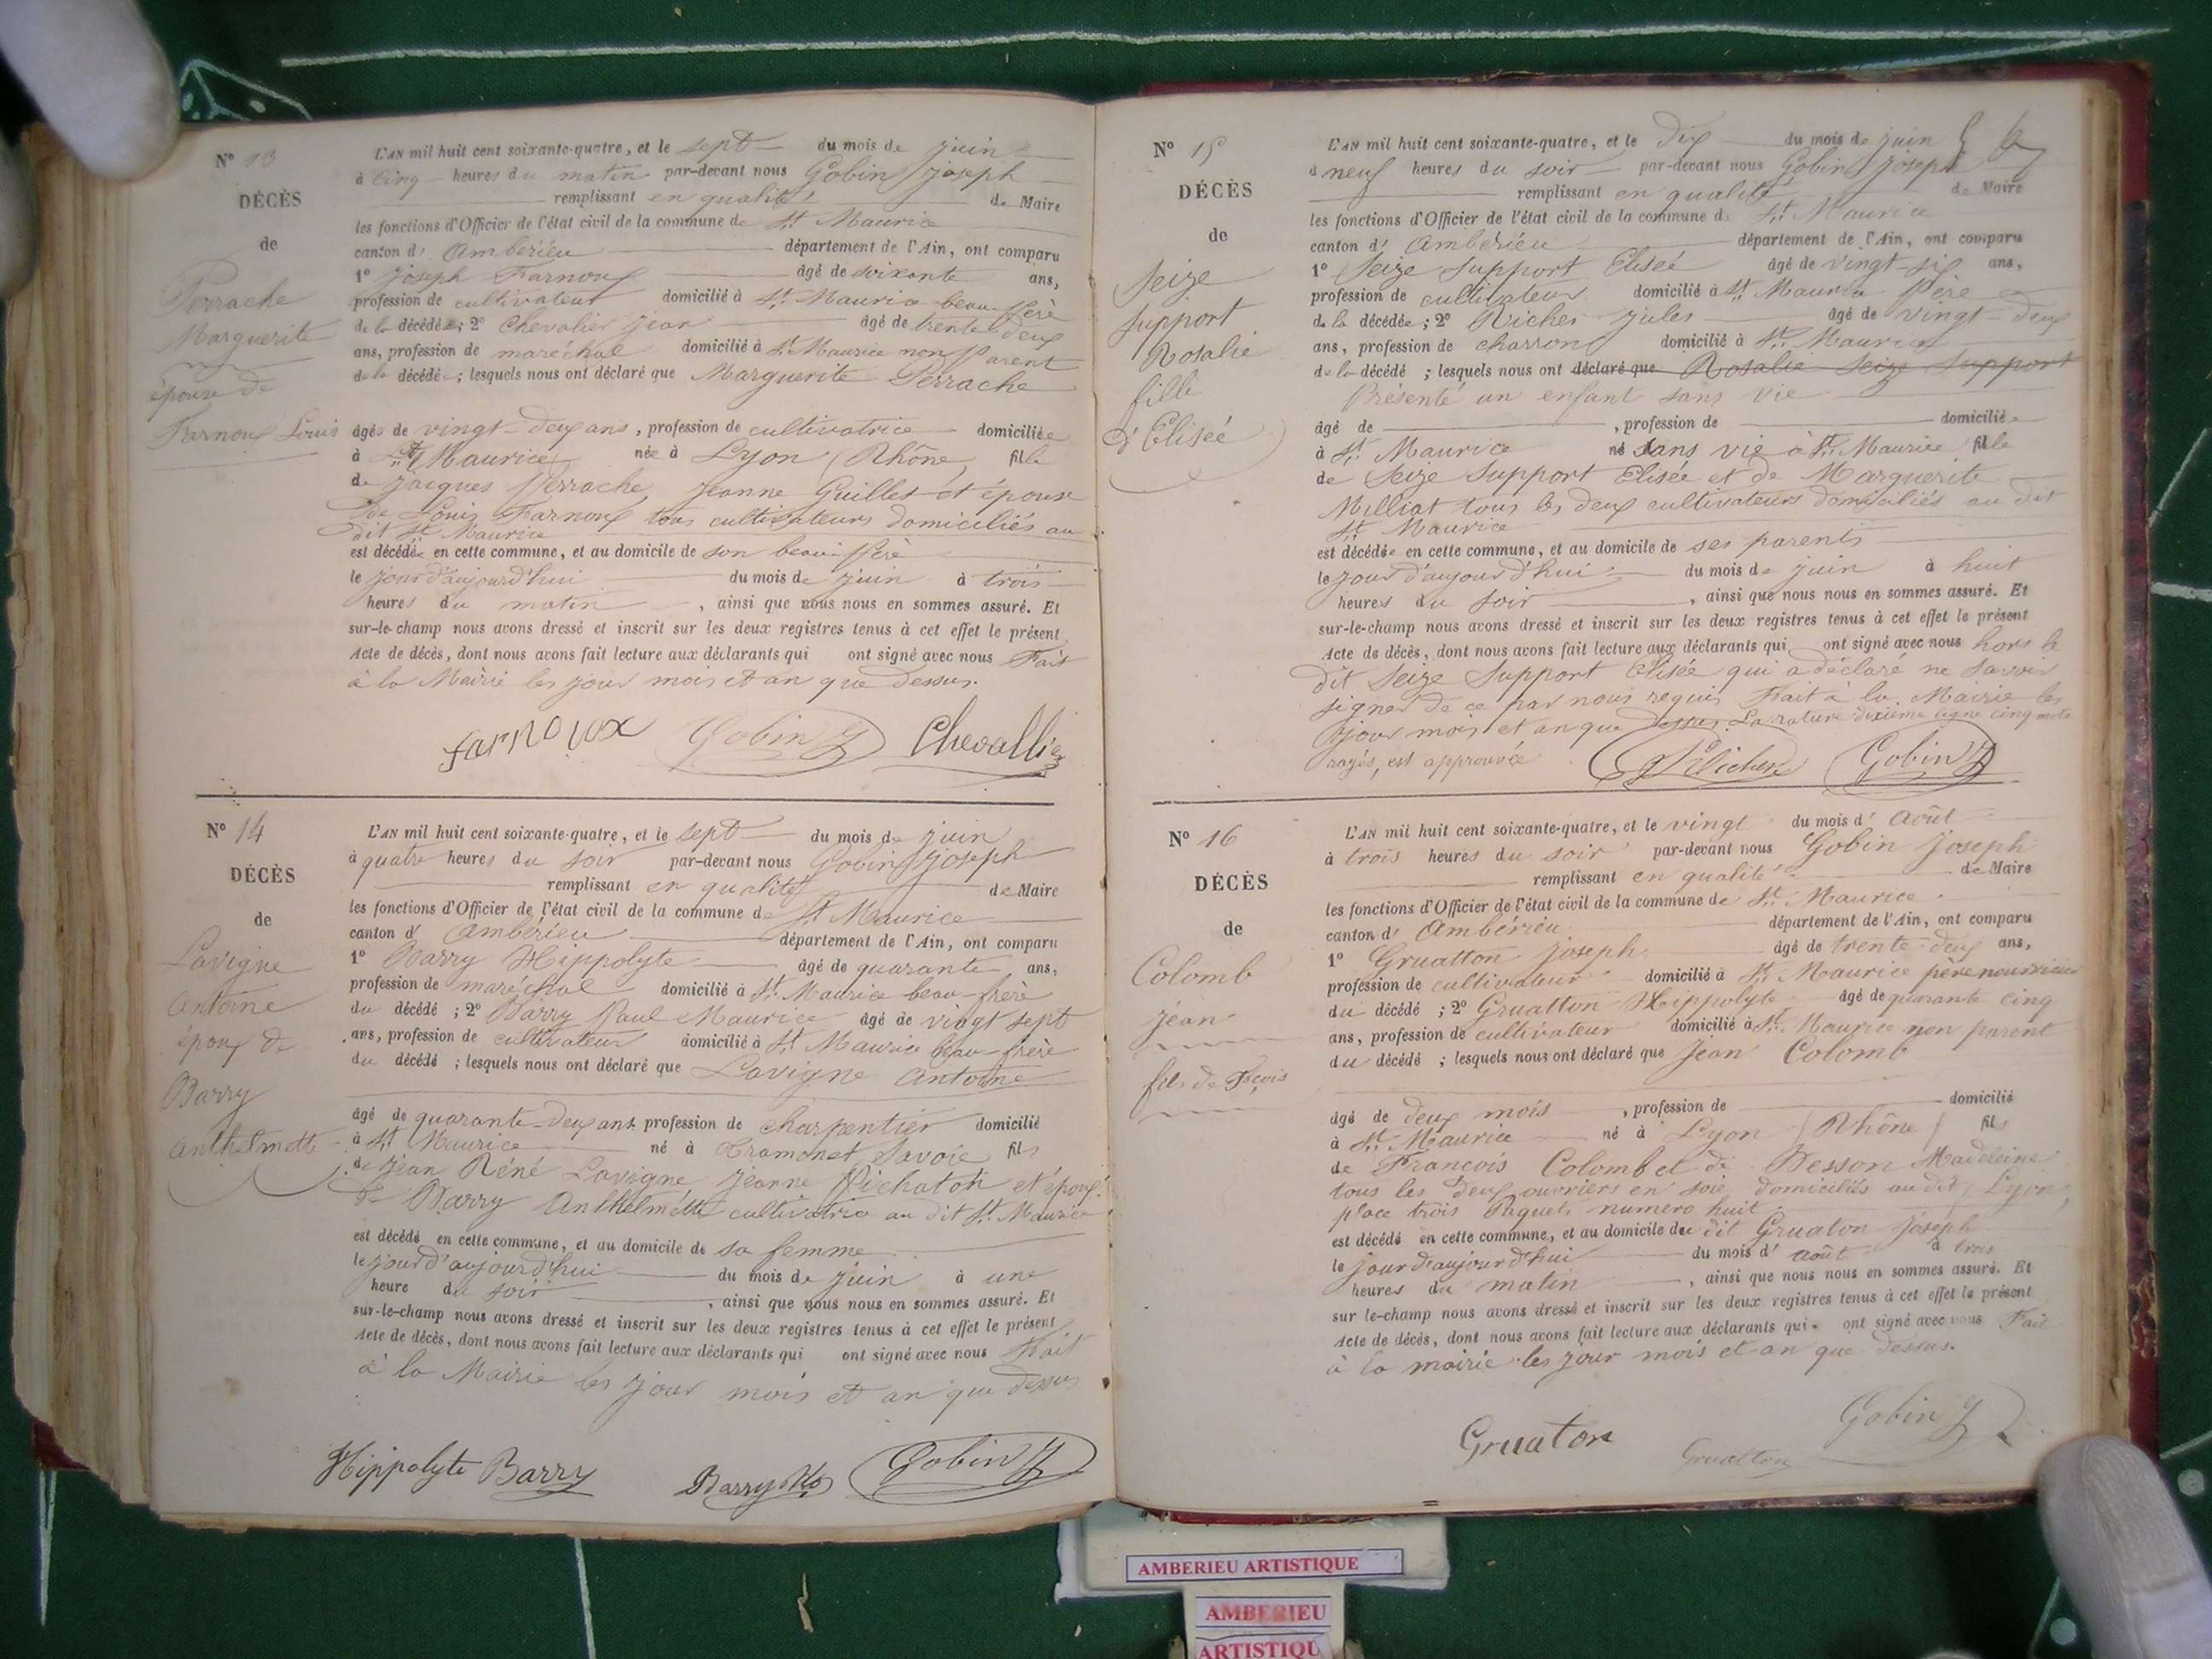 N° 13
DÉCÈS
de
Perrache
Marguerite
épouse de
Farnoux Louis
L'AN mil huit cent soixante-quatre, et le sept du mois de juin
à cinq heures du matin par-devant nous Gobin Joseph
remplissant en qualité de Maire
les fonctions d'Officier de l'état civil de la commune de St Maurice
canton d' Ambérieu département de l'Ain, ont comparu
1° Joseph Farnoux âgé de soixante ans,
profession de cultivateur domicilié à St Maurice beau-père
de la décédée; 2° Chevalier Jean âgé de trente deux
ans, profession de maréchal domicilié à St Maurice non parent
de la décédée; lesquels nous ont déclaré que Marguerite Perrache
âgée de vingt-deux ans, profession de cultivatrice domiciliée
à St Maurice née à Lyon (Rhône) fille
de Jacques Perrache, Jeanne Guillet et épouse
de Louis Farnoux tous cultivateurs domiciliés au
dit St Maurice
est décédée en cette commune, et au domicile de son beau-père
le jour d'aujourd'hui du mois de juin à trois
heures du matin, ainsi que nous nous en sommes assuré. Et
sur-le-champ nous avons dressé et inscrit sur les deux registres tenus à cet effet le présent
Acte de décès, dont nous avons fait lecture aux déclarants qui ont signé avec nous Fait
à la Mairie les jour mois et an que dessus.
farnoux Gobin J Chevallier
N° 14
DÉCÈS
de
Lavigne
Antoine
époux de
Barry
Anthelmette
L'AN mil huit cent soixante-quatre, et le sept du mois de juin
à quatre heures du soir par-devant nous Gobin Joseph
remplissant en qualité de Maire
les fonctions d'Officier de l'état civil de la commune de St Maurice
canton d' Ambérieu département de l'Ain, ont comparu
1° Barry Hippolyte âgé de quarante ans,
profession de maréchal domicilié à St Maurice beau-frère
du décédé; 2° Barry Paul Maurice âgé de vingt sept
ans, profession de cultivateur domicilié à St Maurice beau-frère
du décédé; lesquels nous ont déclaré que Lavigne Antoine
âgé de quarante-deux ans profession de charpentier domicilié
à St Maurice né à Tramonet Savoie fils
de Jean Réné Lavigne Jeanne Pichatoh et époux
de Barry Anthelmette cultivatrice au dit St Maurice
est décédé en cette commune, et au domicile de sa femme
le jour d'aujourd'hui du mois de juin à une
heure du soir, ainsi que nous nous en sommes assuré. Et
sur-le-champ nous avons dressé et inscrit sur les deux registres tenus à cet effet le présent
Acte de décès, dont nous avons fait lecture aux déclarants qui ont signé avec nous Fait
à la Mairie les jour mois et an que dessus
Hippolyte Barry Barry Gobin J
N° 15
DÉCÈS
de
Seize
Support
Rosalie
fille
d'Eliseé
L'AN mil huit cent soixante-quatre, et le dix du mois de juin
à neuf heures du soir par-devant nous Gobin Joseph
remplissant en qualité de Maire
les fonctions d'Officier de l'état civil de la commune de St Maurice
canton d' Ambérieu département de l'Ain, ont comparu
1° Seize Support Eliseé âgé de vingt-six ans,
profession de cultivateur domicilié à St Maurice Père
de la décédée; 2° Richer Jules âgé de vingt-deux
ans, profession de charron domicilié à St Maurice
de la décédé; lesquels nous ont déclaré que Rosalie Seize Support
Présenté un enfant sans vie
âgé de, profession de domicilié
à St Maurice né sans vie à St Maurice fille
de Seize Support Elisée et de Marguerite
Milliat tous les deux cultivateurs domiciliés au dit
St Maurice
est décédée en cette commune, et au domicile de ses parents
le jour d'aujourd'hui du mois de juin à huit
heures du soir, ainsi que nous nous en sommes assuré. Et
sur-le-champ nous avons dressé et inscrit sur les deux registres tenus à cet effet le présent
Acte de décès, dont nous avons fait lecture aux déclarants qui ont signé avec nous hors le
dit Seize Support Elisée qui a déclaré ne savoir
signer de ce par nous requis Fait à la Mairie les
jour mois et an que dessus La rature dixième ligne cinq mots
rayés, est approuvée Gobin J
N° 16
DÉCÈS
de
Colomb
jean
fils de Fçois
L'AN mil huit cent soixante-quatre, et le vingt du mois d' Août
à trois heures du soir par-devant nous Gobin Joseph
remplissant en qualité de Maire
les fonctions d'Officier de l'état civil de la commune de St Maurice
canton d' Ambérieu département de l'Ain, ont comparu
1° Gruatton Joseph âgé de trente-deux ans,
profession de cultivateur domicilié à St Maurice père nourricier
du décédé; 2° Gruatton Hippolyte âgé de quarante cinq
ans, profession de cultivateur domicilié à St Maurice non parent
du décédé; lesquels nous ont déclaré que Jean Colomb
âgé de deux mois, profession de domicilié
à St Maurice né à Lyon (Rhône) fils
de François Colomb et de Besson Madeleine
tous les deux ouvriers en soie domiciliés au dit Lyon,
place trois Paquets numero huit
est décédé en cette commune, et au domicile du dit Gruaton Joseph
le jour d'aujourd'hui du mois d' août à trois
heures du matin, ainsi que nous nous en sommes assuré. Et
sur le-champ nous avons dressé et inscrit sur les deux registres tenus à cet effet le présent
Acte de décès, dont nous avons fait lecture aux déclarants qui ont signé avec nous Fait
à la mairie les jour mois et an que dessus.
Gruaton Gruatton Gobin J
AMBERIEU ARTISTIQUE
AMBERIEU
ARTISTIQU